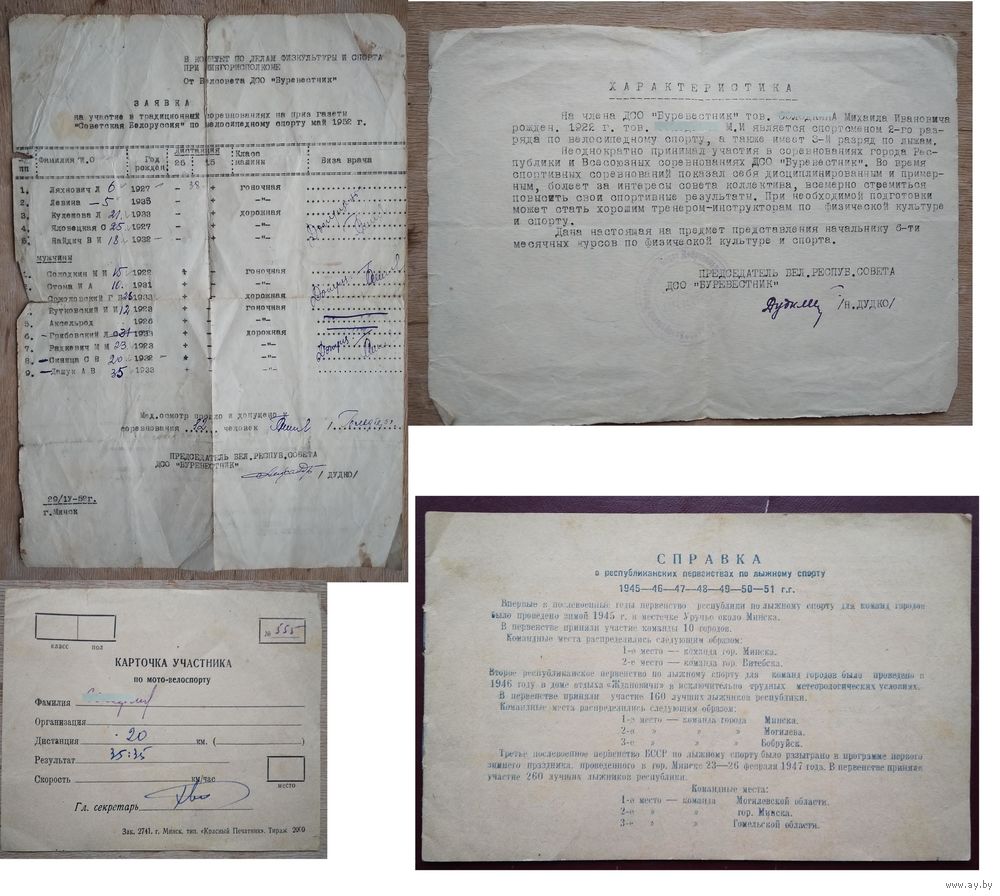 В КОМИТЕТ ПО ДЕЛАМ ФИЗКУЛЬТУРЫ И СПОРТА
ПРИ МИНГОРИСПОЛКОМЕ
От Велсовета ДСО "Буревестник"
ЗАЯВКА
на участие в традиционных соревнованиях на приз газеты
"Советская Белоруссия" по велосипедному спорту май 1952 г.
пп Фамилия И.О Год рожден. дистанция 25 15 Класс машин Виза врача
1. Ляхнович Л 6 1927 - 38 + гоночная
2. Левина 5 1935 - + -"-
3. Куденова Л 21 1933 - + дорожная
4. Яловецкая С 25 1927 - + -"-
5. Найдич В И 18 1932 - + -"-
МУЖЧИНЫ
Солодкин М И 15 1922 + - гоночная
Стома И А 16 1931 + - -"-
1933 + - дорожная
Бутковский И И 12 1923 + - гоночная
5. Аксельрод 1926 + - -"-
6. Грибовский Л 1933 + - дорожная
7. Радкевич М М 23 1923 + - -"-
8. Синица С В 20 1932 -"-
9. Дашук А В 35 1933 + - -"-
Мед.осмотр прошло и допущено к
соревнования 12 человек
ПРЕДСЕДАТЕЛЬ БЕЛ.РЕСПУБ.СОВЕТА
ДСО "БУРЕВЕСТНИК" / ДУДКО/
29/IУ-52г.
г.Минск
ХАРАКТЕРИСТИКА
На члена ДСО "Буревестник" тов. СОЛОДКИНА Михаила Ивановича
рожден. 1922 г. тов. М.И является спортсменом 2-го раз-
ряда по велосипедному спорту, а также имеет 3-й разряд по лыжам.
Неоднократно принимал участия в соревнованиях города Рес-
публики и Всесоюзных соревнованиях ДСО "Буревестник". Во время
спортивных соревнований показал себя дисциплинированным и пример-
ным, болеет за интересы совета коллектива, всемерно стремиться
повысить свои спортивные результаты. При необходимой подготовки
может стать хорошим тренером-инструкторам по физической культуре
и спорту.
Дана настоящая на предмет представления начальнику 6-ти
месячных курсов по физической культуре и спорта.
ПРЕДСЕДАТЕЛЬ БЕЛ.РЕСПУБ.СОВЕТА
ДСО "БУРЕВЕСТНИК"
/Н.ДУДКО/
класс пол
№ 555
КАРТОЧКА УЧАСТНИКА
по мото-велоспорту
Фамилия
Организация
Дистанция 20 км. ( )
Результат 35:35
Скорость км/час
место
Гл. секретарь
Зак. 2741. г. Минск, тип. «Красный Печатник». Тираж 2000
СПРАВКА
о республиканских первенствах по лыжному спорту
1945—46—47—48—49—50—51 г.г.
Впервые в послевоенные годы первенство республики по лыжному спорту для команд городов
было проведено зимой 1945 г. в местечке Уручье около Минска.
В первенстве приняли участие команды 10 городов.
Командные места распределились следующим образом:
1-е место — команда гор. Минска.
2-е место — команда гор. Витебска.
Второе республиканское первенство по лыжному спорту для команд городов было проведено в
1946 году в доме отдыха «Ждановичи» в исключительно трудных метеорологических условиях.
В первенстве приняли участие 160 лучших лыжников республики.
Командные места распределились следующим образом:
1-е место — команда города Минска.
2-е » » » Могилева.
3-е » » » Бобруйск.
Третье послевоенное первенство БССР по лыжному спорту было разыграно в программе первого
зимнего праздника, проведенного в гор. Минске 23—26 февраля 1947 года. В первенстве приняли
участие 260 лучших лыжников республики.
Командные места:
1-е место — команда Могилевской области.
2-е » » гор. Минска.
3-е » » Гомельской области.
www.ay.by